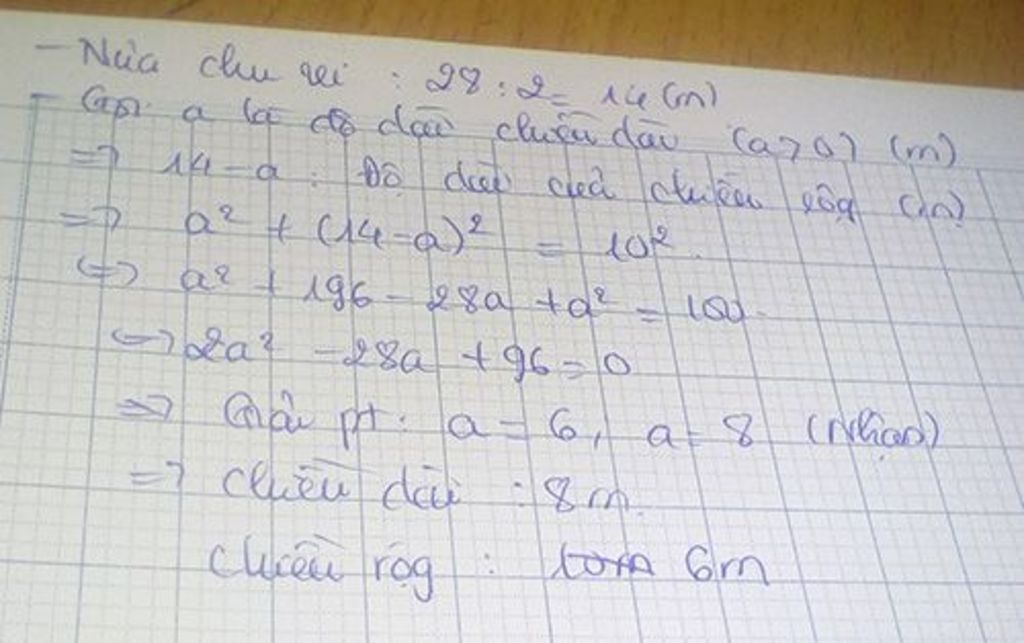 - Nửa chu vi : 28 : 2 = 14 (m)
- Gọi a là độ dài chiều dài (a > 0) (m)
=> 14 - a : Độ dài của chiều rộg (m)
=> a² + (14 - a)² = 10²
<=> a² + 196 - 28a + a² = 100
<=> 2a² - 28a + 96 = 0
=> Giải pt : a = 6, a = 8 (Nhận)
=> chiều dài : 8m.
chiều rộg : 6m